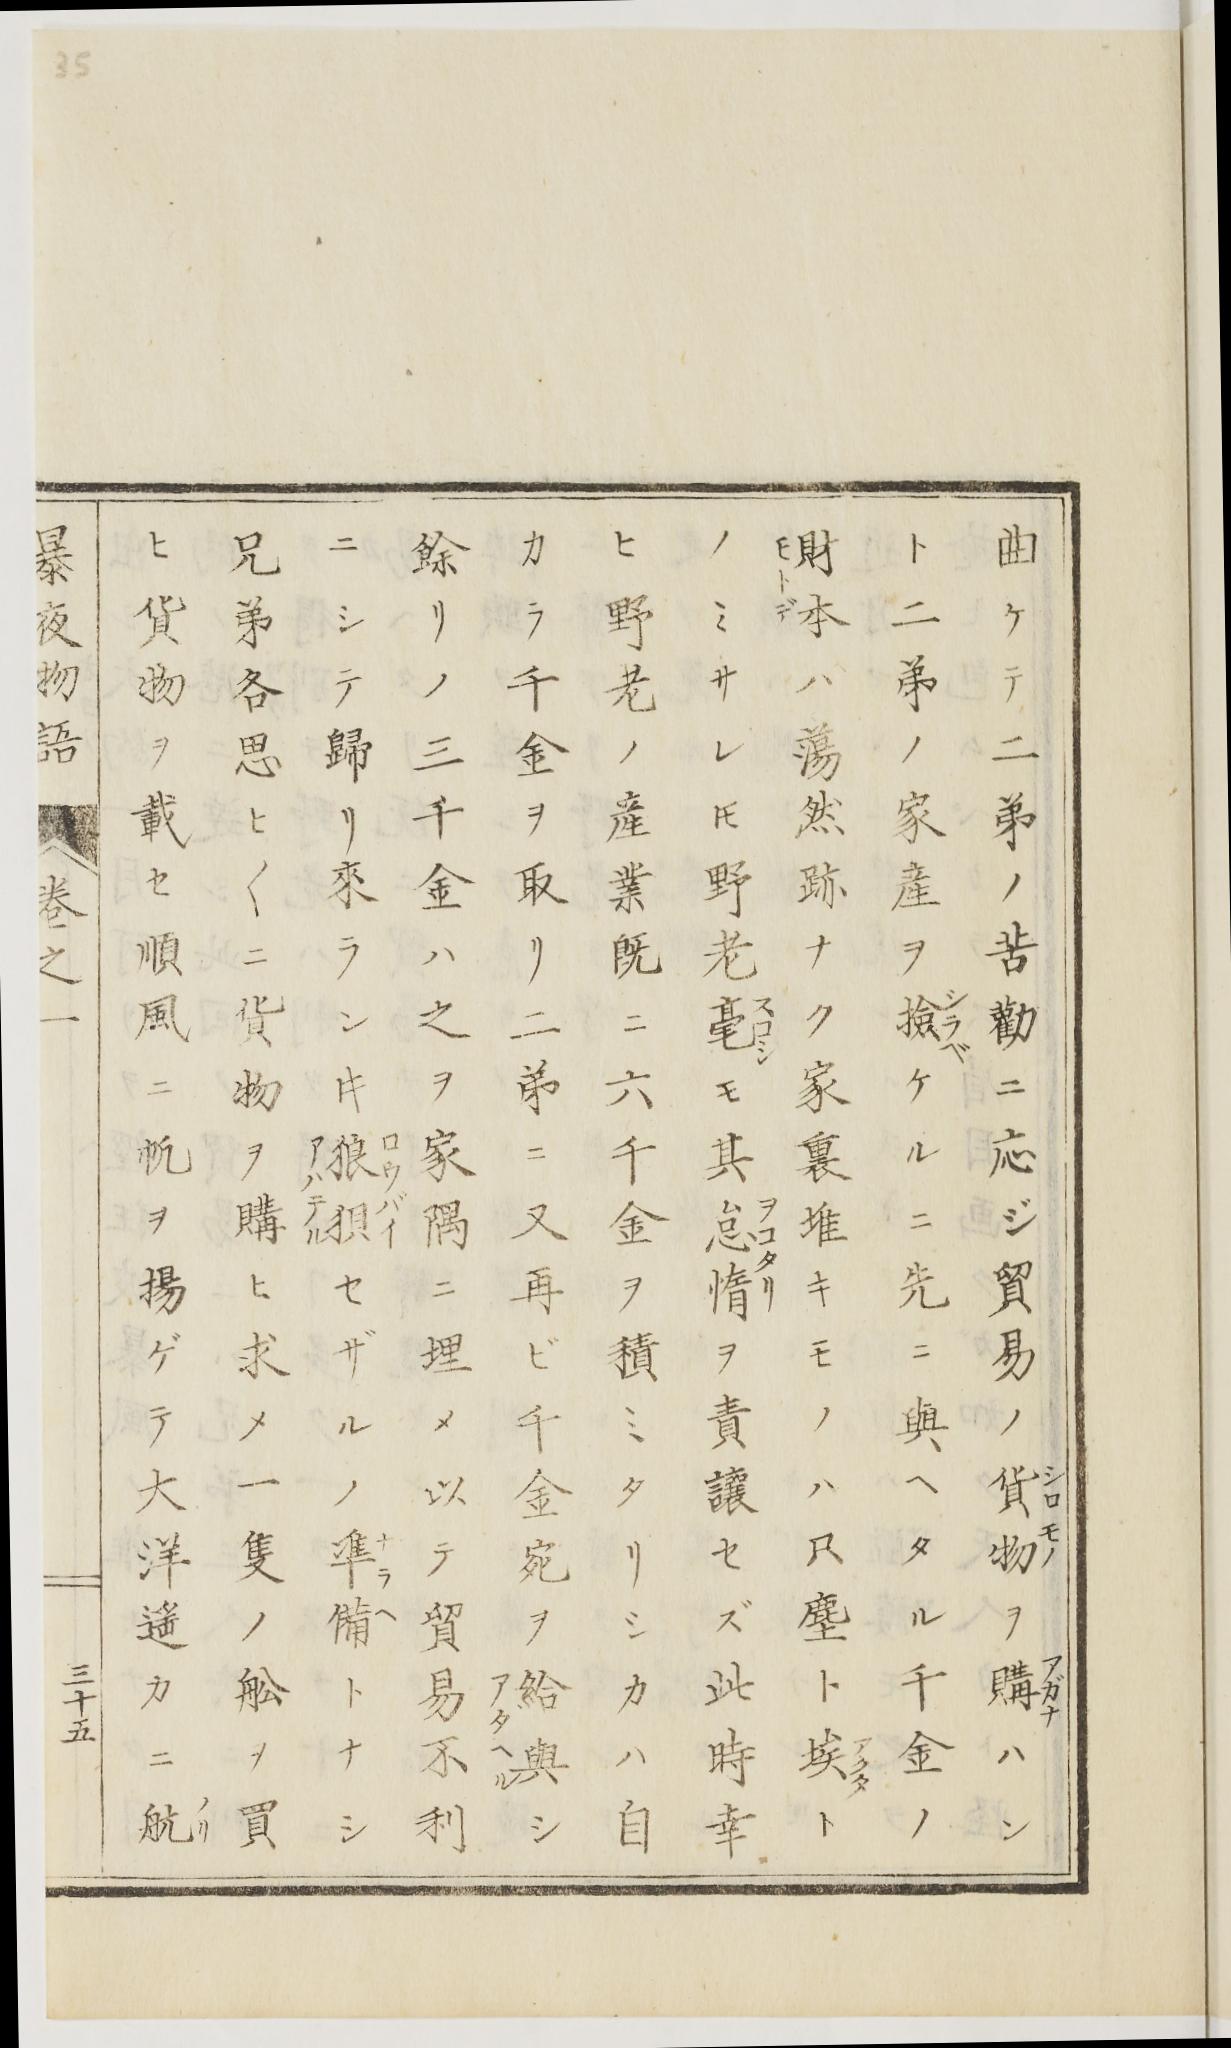 曲ケテ二弟ノ苦勸ニ応ジ貿易ノ貨物ヲ購ハン
ト二弟ノ家産ヲ撿ケルニ先ニ與ヘタル千金ノ
財本ハ蕩然跡ナク家裏堆キモノハ只塵ト埃ト
ノミサレ𪜈野老毫モ其怠惰ヲ責讓セズ此時幸
ヒ野老ノ産業既ニ六千金ヲ積ミタリシカハ自
カラ千金ヲ取リ二弟ニ又再ビ千金宛ヲ給與シ
餘リノ三千金ハ之ヲ家隅ニ埋メ以テ貿易不利
ニシテ歸リ來ランキ狼狽セザルノ準備トナシ
兄弟各思ヒ〱ニ貨物ヲ購ヒ求メ一隻ノ舩ヲ買
ヒ貨物ヲ載セ順風ニ帆ヲ揚ゲテ大洋遙カニ航
シロモノ
アガナ
シラベ
モトデ
アクタ
スコシ
ヲコタリ
アタヘル
ロウバイ
アハテル
ナラヘ
ノリ
暴夜物語
卷之一
三十五
35